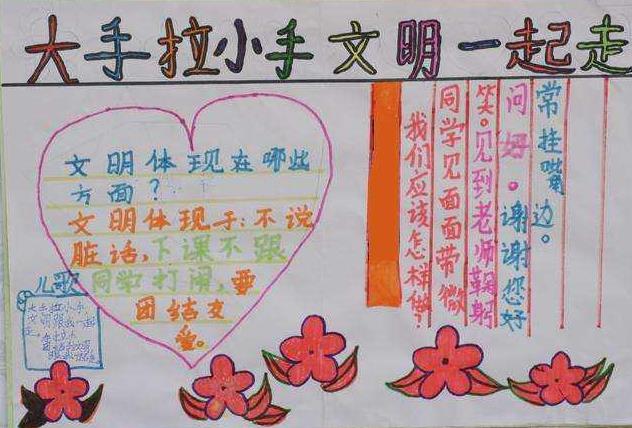 大手拉小手文明一起走
文明体现在哪些
方面？
文明体现于：不说
脏话，下课不跟
同学打闹，要
团结友
爱。
儿歌
大手拉小手，
文明跟我一起
走，
我们应该怎样做？
同学见面面带微
笑。见到老师鞠躬
问好。谢谢您好
常挂嘴边。